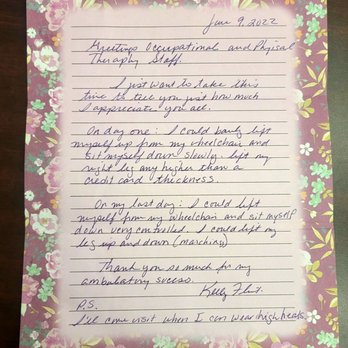 June 9, 2022
Greetings Occupational and Physical
Therapy Staff.
I just want to take this
time to tell you just how much
I appreciate you all.
On day one: I could barely lift
myself up from my wheelchair and
sit myself down slowly. left my
right leg any higher than a
credit card thickness.
On my last day: I could lift
myself from my wheelchair and sit myself
down very controlled. I could lift my
leg up and down (marching)
Thank you so much for my
ambulatory success.
Kelly Flint.
P.S.
I'll come visit when I can wear high heels.